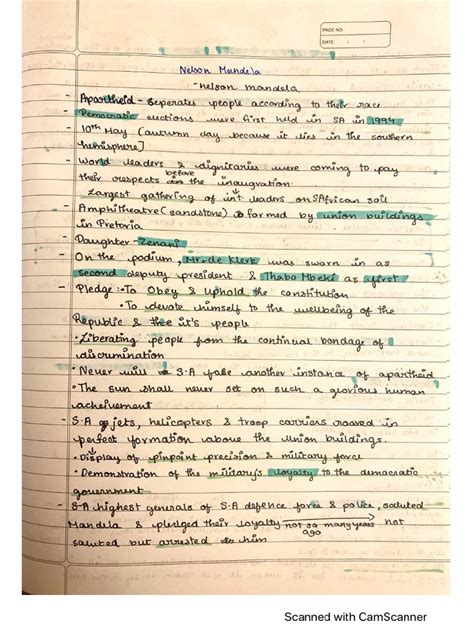 PAGE NO:
DATE: / /
Nelson Mandela
-nelson mandela
- Apartheid - Seperates people according to their race
- Democratic elections were first held in SA in 1994
- 10th May (autumn day, because it lies in the southern
hemisphere]
- World leaders & dignitaries were coming to pay
before
their respects the inauguration
- Largest gathering of int leaders on SAfrican soil
- Amphitheatre (sandstone) formed by union buildings
in Pretoria
- Daughter - Zenani
- On the podium, Mr. de Klerk was sworn in as
second deputy president & Thabo Mbeki as first
- Pledge :- • To Obey & Uphold the constitution
• To devote himself to the wellbeing of the
Republic & it's people
• Liberating people from the continual bondage of
discrimination
• Never will S.A another instance of apartheid
• The sun shall never set on such a glorious human
acheivement
- S.A jets, helicopters & troop carriers roared in
perfect formation above the Union buildings.
• Display of pinpoint precision & military force
• Demonstration of the military's loyalty to the democratic
government
- S.A highest generals of S.A defence force & police, saluted
Mandela & pledged their loyalty not so many years not
ago
saluted but arrested him
Scanned with CamScanner